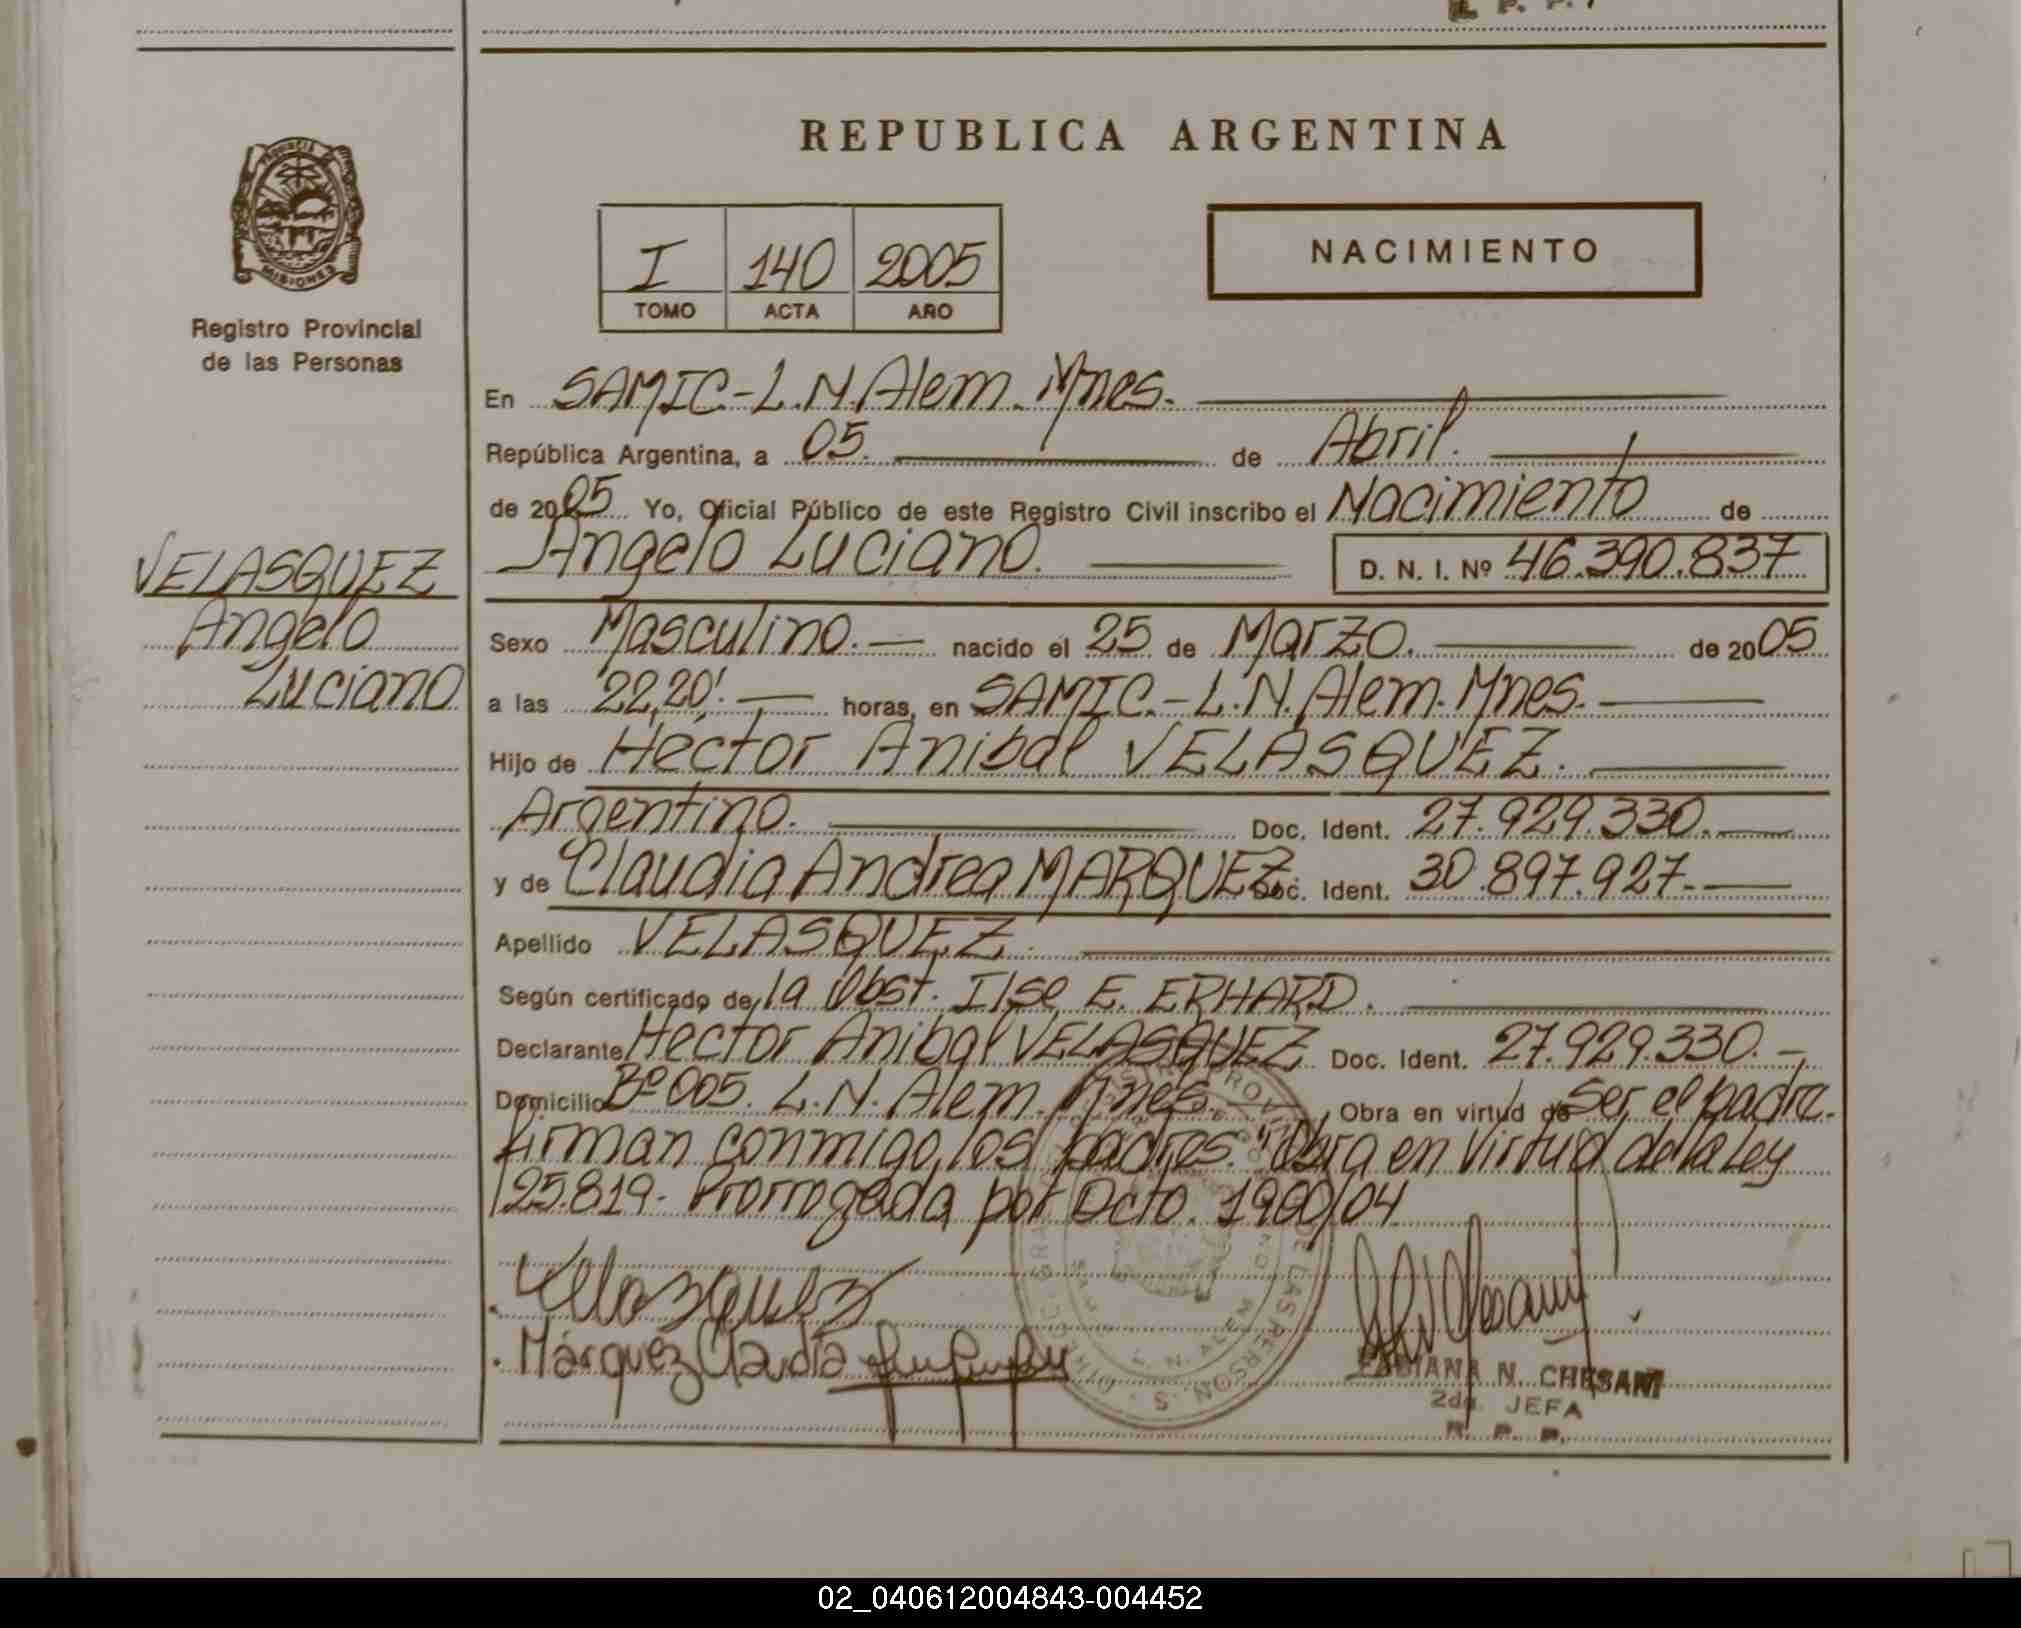 REPUBLICA ARGENTINA
PROVINCIA DE
MISIONES
Registro Provincial
de las Personas
I 140 2005
TOMO ACTA AÑO
NACIMIENTO
En SAMIC.-L.N.Alem. Mnes.
República Argentina, a 05. de Abril.
de 2005 Yo, Oficial Público de este Registro Civil inscribo el Nacimiento de
Angelo Luciano. D. N. I. Nº 46.390.837
VELASQUEZ
Angelo
Luciano
Sexo Masculino. nacido el 25 de Marzo. de 2005
a las 22,20'. horas, en SAMIC.-L.N.Alem. Mnes.
Hijo de Héctor Anibal VELASQUEZ.
Argentino. Doc. Ident. 27.929.330.
y de Claudia Andrea MARQUEZ. Doc. Ident. 30.897.927.
Apellido VELASQUEZ.
Según certificado de la Obst. Ilse E. ERHARD.
Declarante Héctor Anibal VELASQUEZ Doc. Ident. 27.929.330.
Domicilio Bº 005. L.N. Alem. Mnes. Obra en virtud de Ser el padre.
firman conmigo los padres. "Obra en Virtud de la Ley
25.819- Prorrogada por Dcto. 1960/04
Velazquez
Márquez Claudia
L. N. ALEM
FABIANA N. CHESANI
2da. JEFA
R. P. P.
02_040612004843-004452